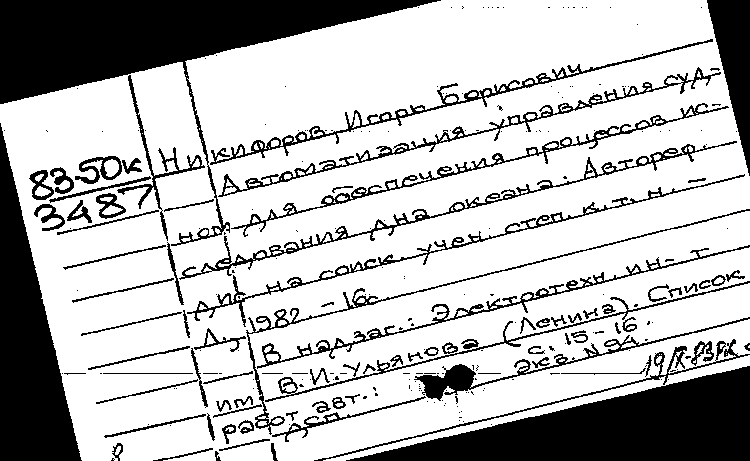 83-50к
3487
Никифоров, Игорь Борисович.
Автоматизация управления суд-
ном для обеспечения процессов ис-
следования дна океана: Автореф.
дис. на соиск. учен. степ. к. т. н. –
Л., 1982. – 16с
В надзаг.: Электротехн. ин-т
им. В.И. Ульянова (Ленина). Список
работ авт.: с. 15-16.
ДСП. Экз. N 94.
8